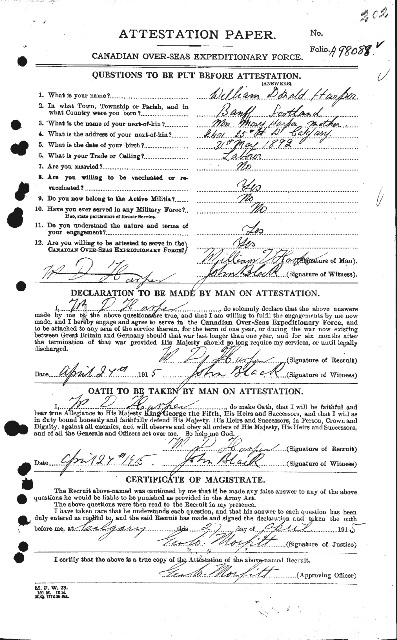 202
ATTESTATION PAPER.
No.
Folio. A98088
CANADIAN OVER-SEAS EXPEDITIONARY FORCE.
QUESTIONS TO BE PUT BEFORE ATTESTATION.
(ANSWERS)
1. What is your name? William Donald Harper
2. In what Town, Township or Parish, and in
what Country were you born? Banff Scotland
3. What is the name of your next-of-kin? Mrs Mary Harper mother
4. What is the address of your next-of-kin? 25th Calgary
5. What is the date of your birth? May 1892
6. What is your Trade or Calling?
7. Are you married? No
8. Are you willing to be vaccinated or re-
vaccinated? Yes
9. Do you now belong to the Active Militia? No
10. Have you ever served in any Military Force? No
11. Do you understand the nature and terms of
your engagement? Yes
12. Are you willing to be attested to serve in the Yes
CANADIAN OVER-SEAS EXPEDITIONARY FORCE?
William D Harper (Signature of Man).
W D Harper John Black (Signature of Witness)
DECLARATION TO BE MADE BY MAN ON ATTESTATION.
I, W D Harper, do solemnly declare that the above answers
made by me to the above questions are true, and that I am willing to fulfil the engagements by me now
made, and I hereby engage and agree to serve in the Canadian Over-Seas Expeditionary Force, and
to be attached to any arm of the service therein, for the term of one year, or during the war now existing
between Great Britain and Germany should that war last longer than one year, and for six months after
the termination of that war provided His Majesty should so long require my services, or until legally
discharged.
W D Harper (Signature of Recruit)
Date April 24th 1915 John Black (Signature of Witness)
OATH TO BE TAKEN BY MAN ON ATTESTATION.
I, W D Harper, do make Oath, that I will be faithful and
bear true Allegiance to His Majesty King George the Fifth, His Heirs and Successors, and that I will as
in duty bound honestly and faithfully defend His Majesty, His Heirs and Successors, in Person, Crown and
Dignity, against all enemies, and will observe and obey all orders of His Majesty, His Heirs and Successors,
and of all the Generals and Officers set over me. So help me God.
W D Harper (Signature of Recruit)
Date April 24th 1915 John Black (Signature of Witness)
CERTIFICATE OF MAGISTRATE.
The Recruit above-named was cautioned by me that if he made any false answer to any of the above
questions he would be liable to be punished as provided in the Army Act.
The above questions were then read to the Recruit in my presence.
I have taken care that he understands each question, and that his answer to each question has been
duly entered as replied to, and the said Recruit has made and signed the declaration and taken the oath
before me, at Calgary this day of April 1915
Geo. C. Morfitt (Signature of Justice)
I certify that the above is a true copy of the Attestation of the above-named Recruit.
Geo. C. Morfitt (Approving Officer)
M. F. W. 23.